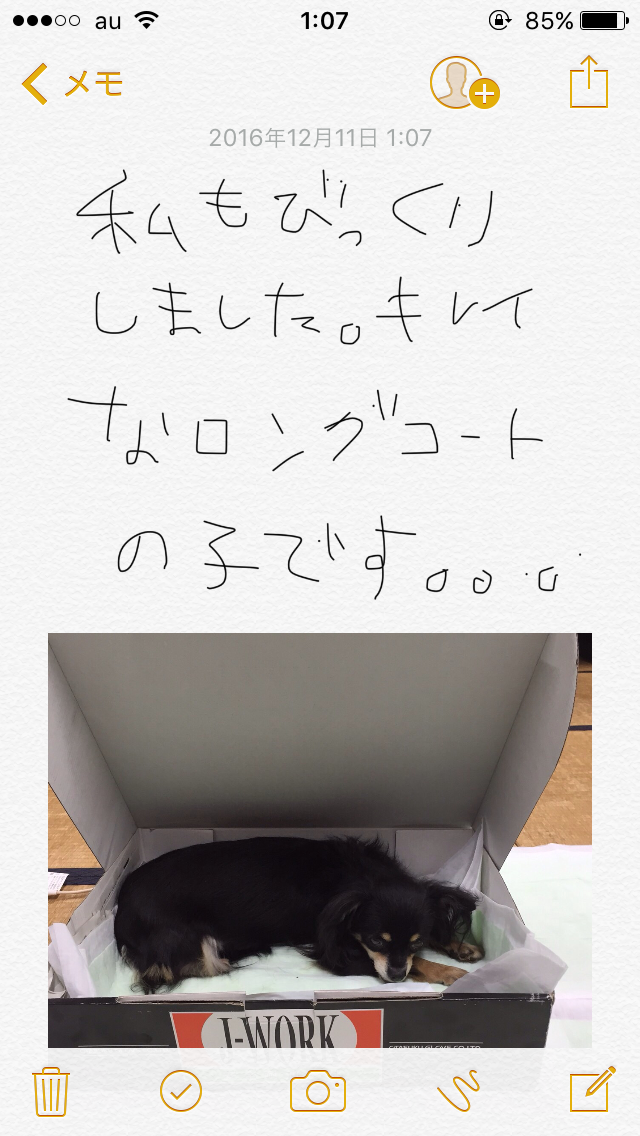 au 1:07 85%
メモ
2016年12月11日 1:07
私もびっくり
しました。キレイ
なロングコート
の子です。。。
J-WORK